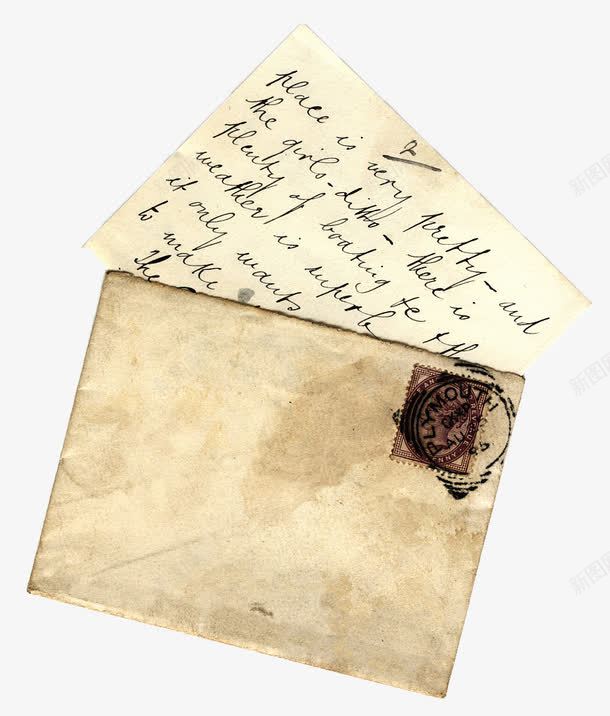 2
place is very pretty – and
the girls – ditto – there is
plenty of boating &c & th
weather is superb
it only wants
to make
The
PLYMOUTH
AU
86
新图网
新图网
新图网